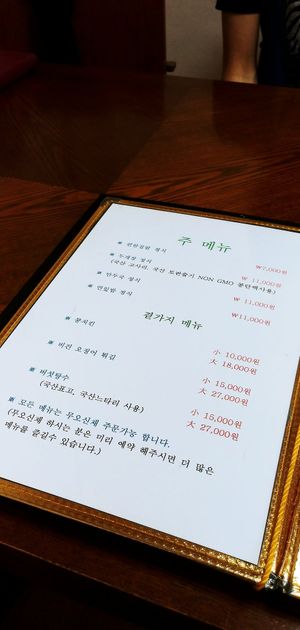 주 메뉴
※ 편한집밥 정식 ₩7,000원
※ 두개장 정식 ₩ 11,000원
(국산 고사리, 국산 토란줄기 NON GMO 콩단백사용)
※ 만두국 정식 ₩ 11,000원
※ 연잎밥 정식 ₩11,000원
곁가지 메뉴
※ 콩치킨 小 10,000원
大 18,000원
※ 비건 오징어 튀김 小 15,000원
大 27,000원
※ 버섯탕수 小 15,000원
(국산표고, 국산느타리 사용) 大 27,000원
※ 모든 메뉴는 무오신채 주문가능 합니다.
(무오신채 하시는 분은 미리 예약 해주시면 더 많은
메뉴를 즐길수 있습니다.)